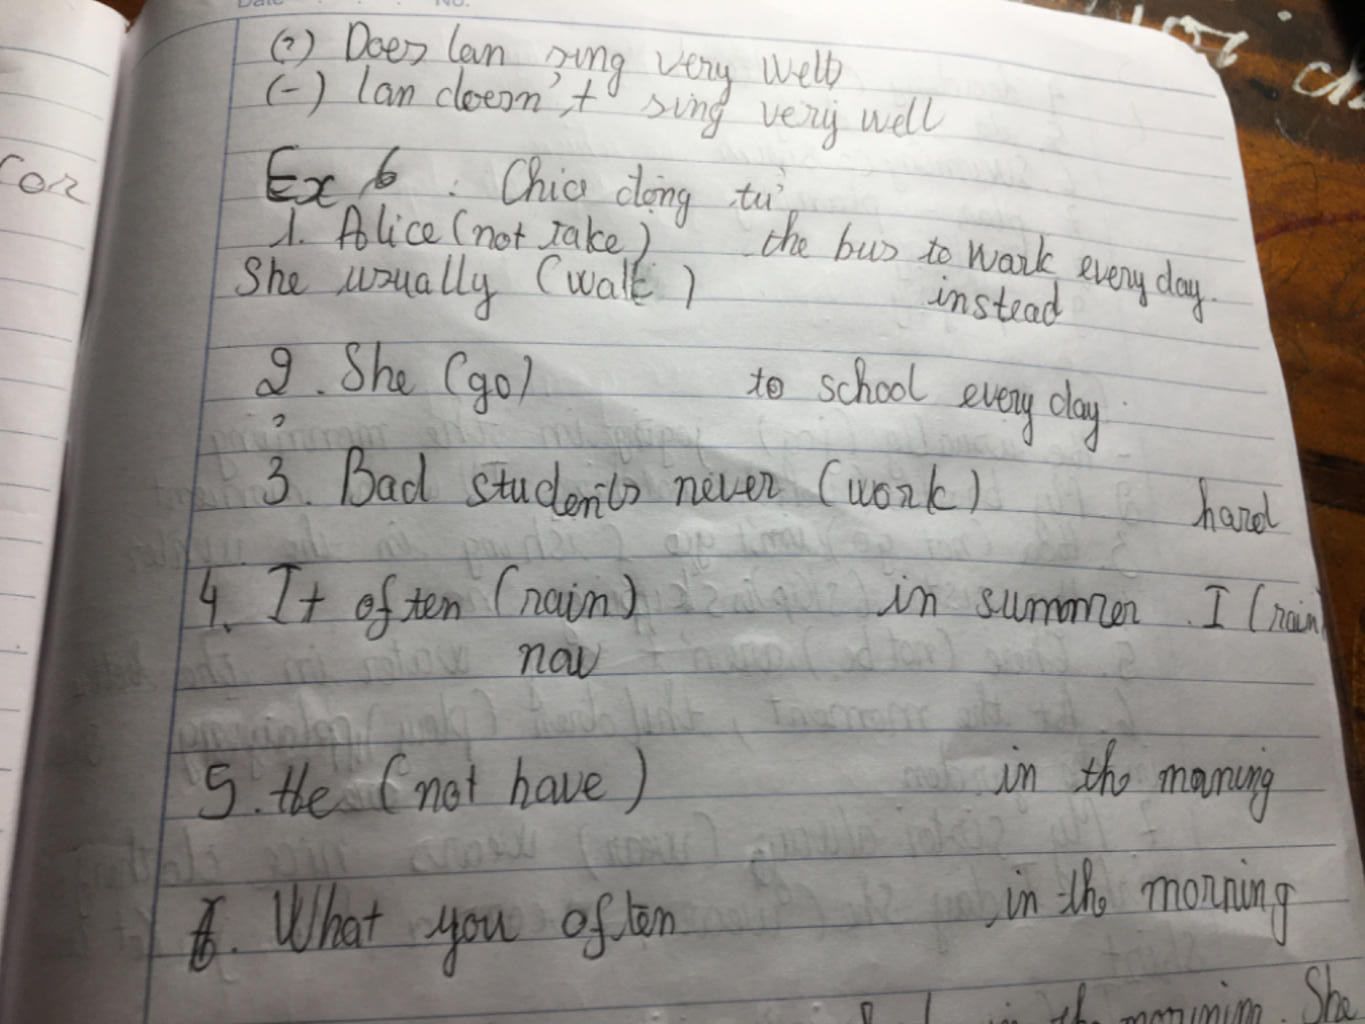 Date No.
(?) Does lan sing very well
(-) lan doesn't sing very well
Ex 6 : Chia động từ
1. Alice (not take) the bus to work every day.
She usually (walk) instead
2. She (go) to school every day
3. Bad students never (work) hard
4. It often (rain) in summer. I (rain)
now
5. He (not have) in the morning
6. What you often in the morning
in the morning. She
for